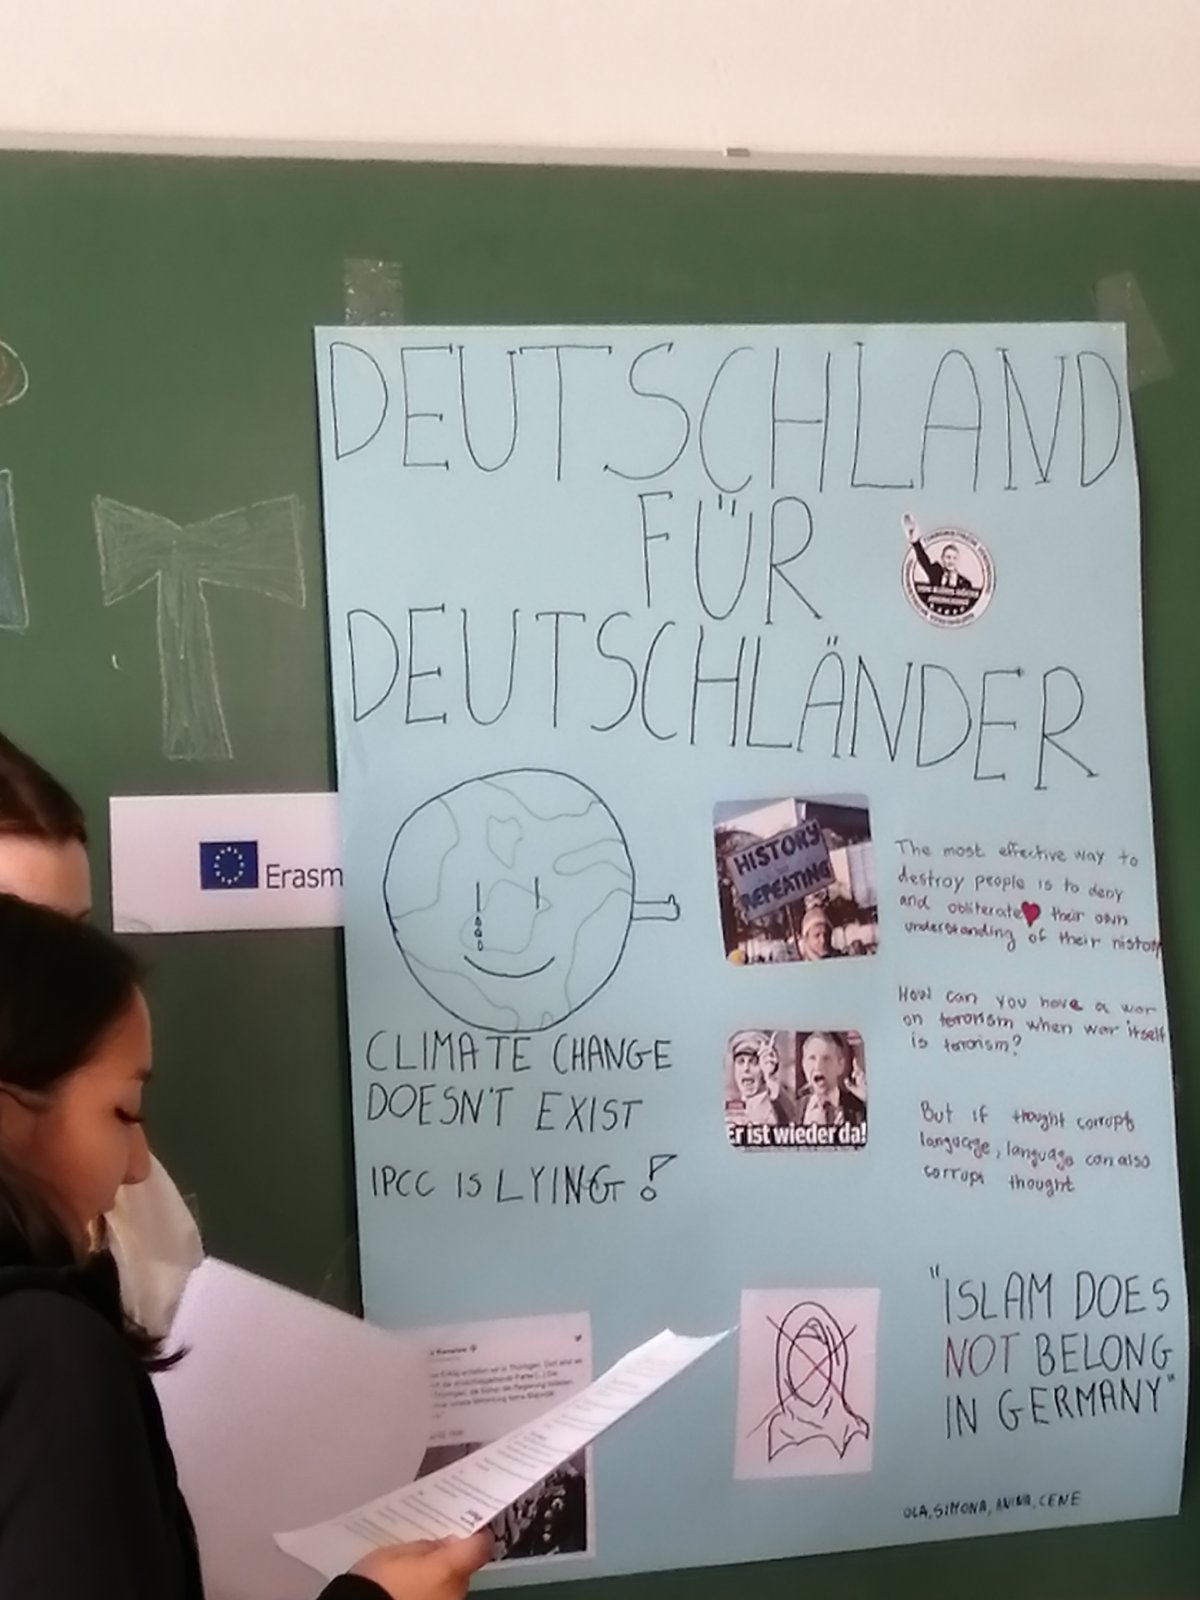 DEUTSCHLAND
FÜR
DEUTSCHLÄNDER
Erasm
HISTORY
REPEATING
The most effective way to
destroy people is to deny
and obliterate their own
understanding of their history
How can you have a war
on terrorism when war itself
is terrorism?
CLIMATE CHANGE
DOESN'T EXIST
IPCC IS LYING!
Er ist wieder da!
But if thought corrupts
language, language can also
corrupt thought
"ISLAM DOES
NOT BELONG
IN GERMANY"
OLA, SIMONA, ANINA, CENE